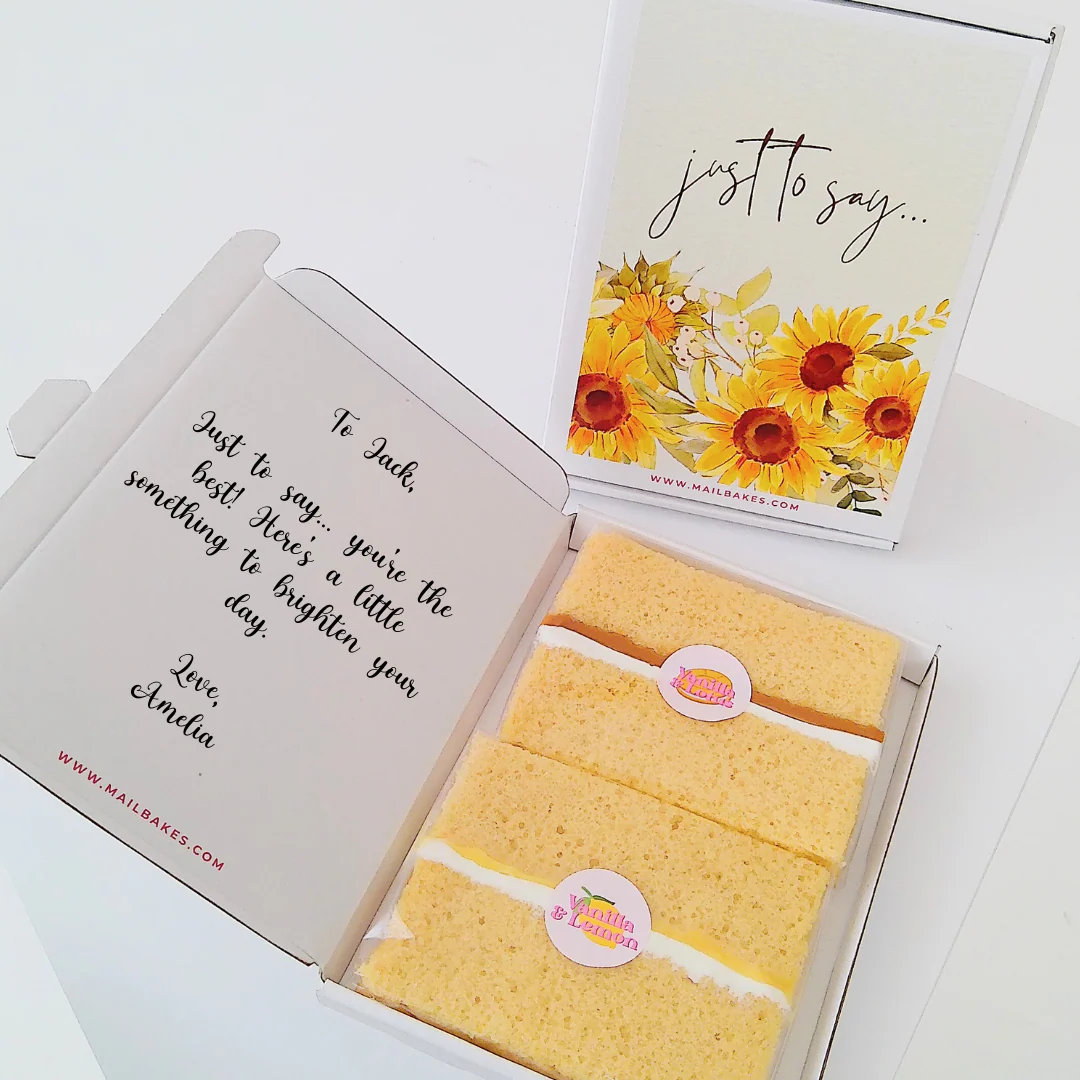 just to say...
WWW.MAILBAKES.COM
To Jack,
Just to say... you're the
best! Here's a little
something to brighten your
day.
Love,
Amelia
WWW.MAILBAKES.COM
Vanilla
Vanilla
& Lemon